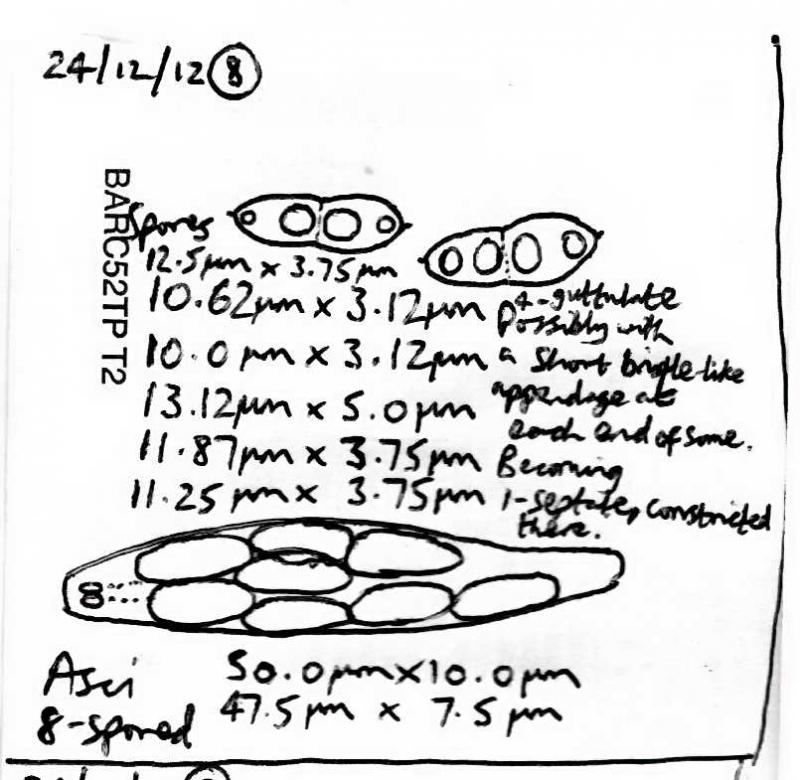 24/12/12 8
BARC52TP T2
Spores
12.5µm x 3.75µm
10.62µm x 3.12µm
10.0µm x 3.12µm
13.12µm x 5.0µm
11.87µm x 3.75µm
11.25µm x 3.75µm
4-guttulate
Possibly with
a short bristle-like
appendage at
each end of some.
Becoming
1-septate, constricted
there.
Asci
8-spored
50.0µm x 10.0µm
47.5µm x 7.5µm